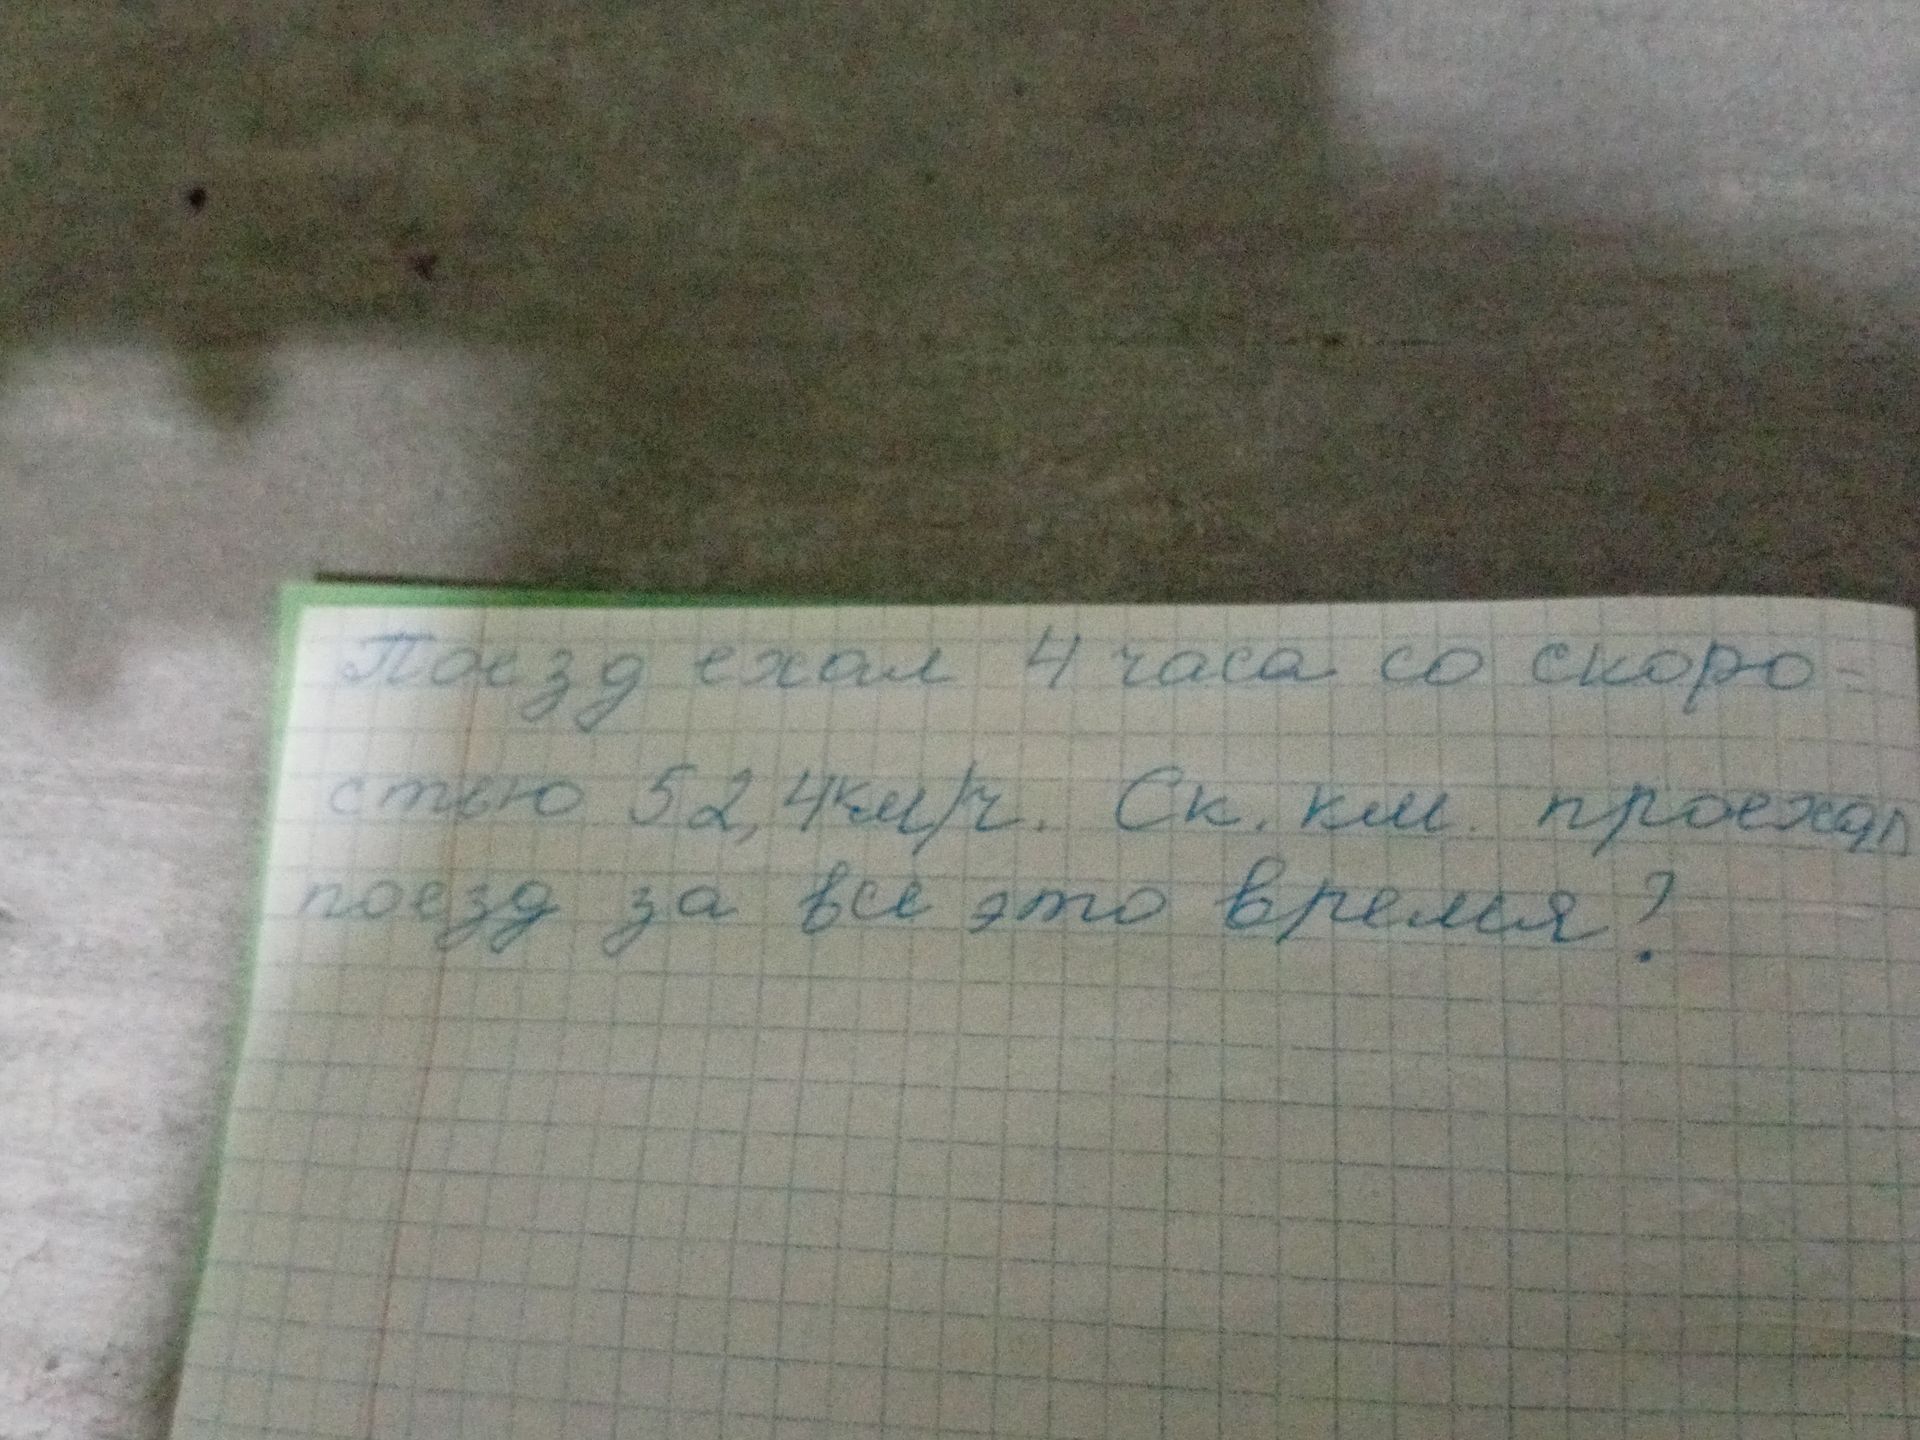 Поезд ехал 4 часа со скоро-
стью 52,4км/ч. Ск. км. проехал
поезд за все это время?